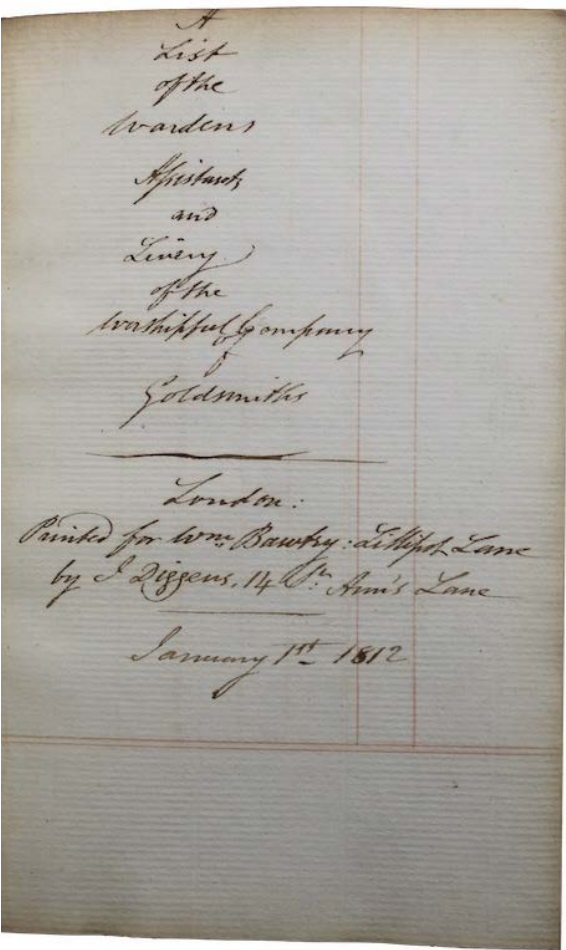 A
List
of the
Wardens
Assistants
and
Livery
of the
Worshipful Company
of
Goldsmiths
London:
Printed for Wm. Bawtry: Lillipot Lane
by J Diggens, 14 St. Ann's Lane
January 1st 1812